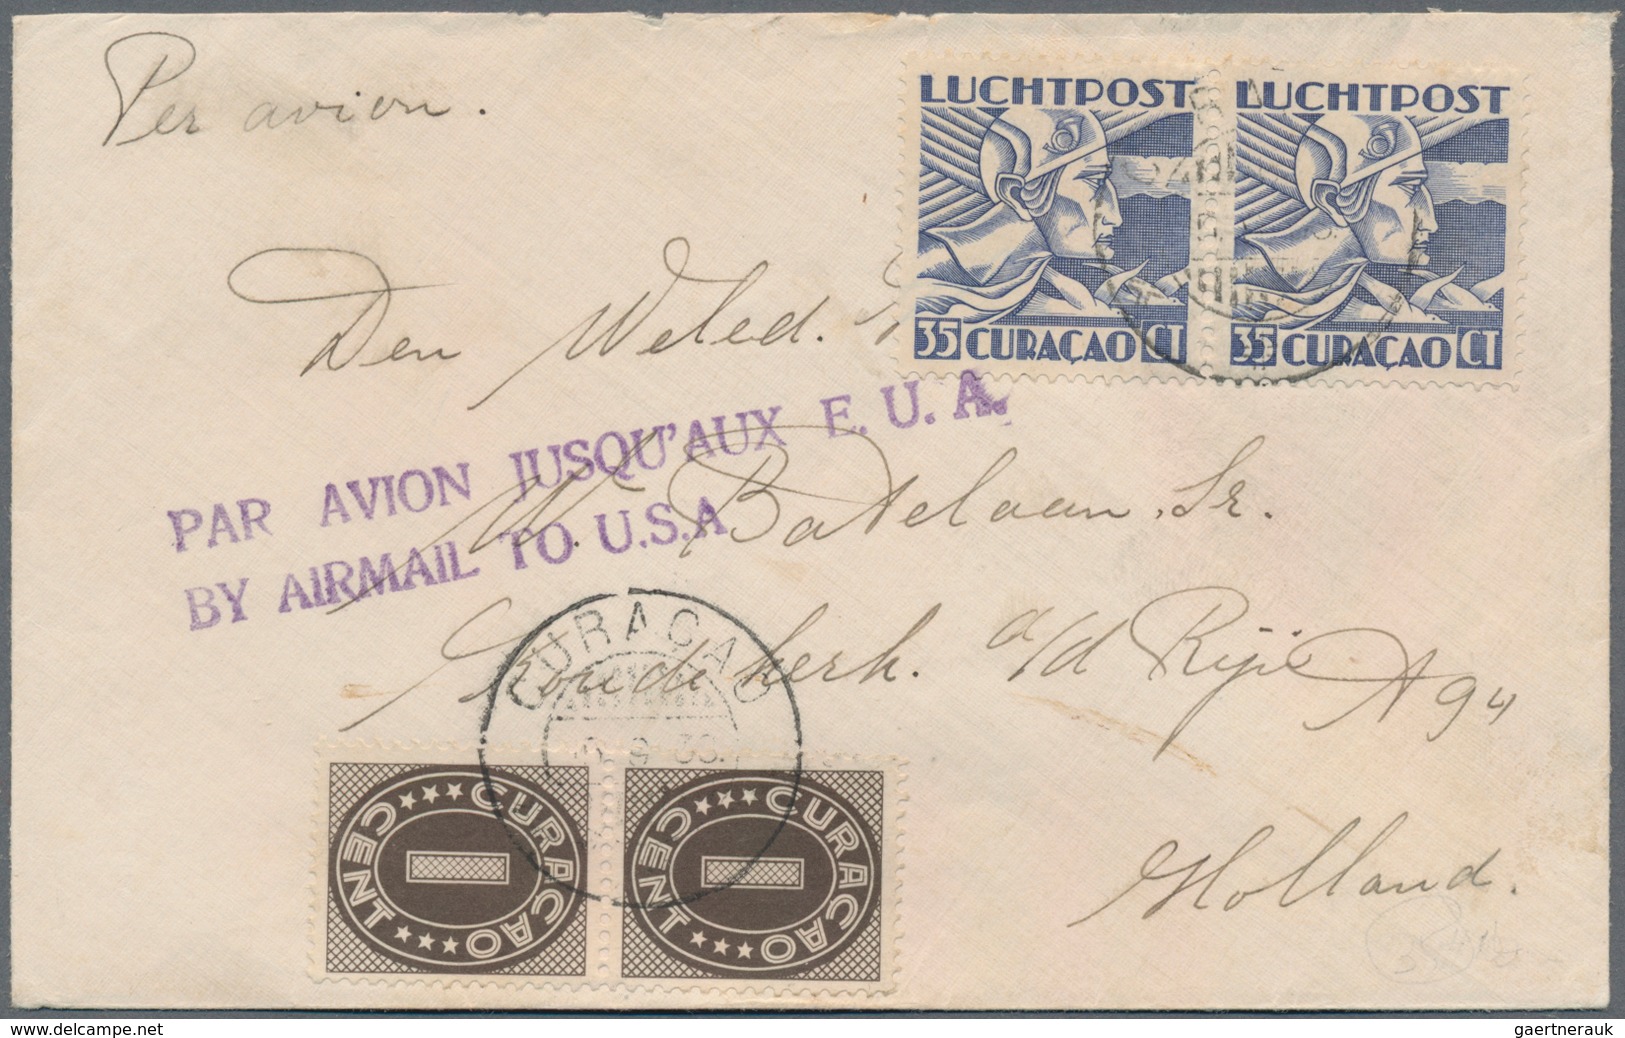 Per avion.
LUCHTPOST LUCHTPOST
35 CURAÇAO CT 35 CURAÇAO CT
Den Weled.
PAR AVION JUSQU'AUX E. U. A.
BY AIRMAIL TO U.S.A
W. Batelaan Sr.
Koudekerk. a/d Rijn A 94
CURAÇAO
9 36.
CURAÇAO *** CENT ***
1
CURAÇAO *** CENT ***
1
Holland.
www.delcampe.net
gaertnerauk